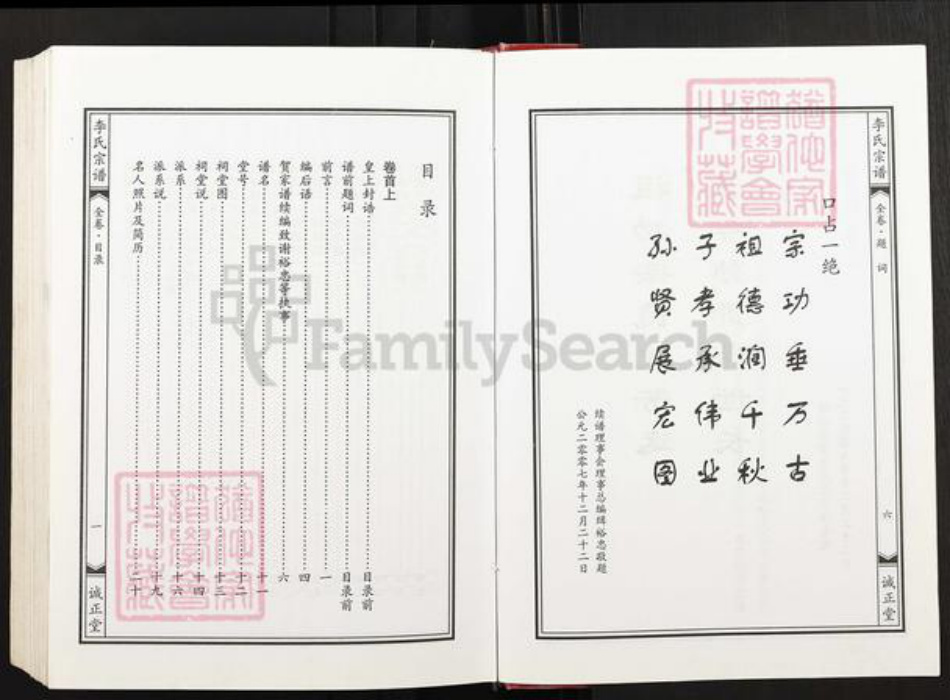 李氏宗谱
全卷·题词
六
诚正堂
口占一绝
宗功垂万古
祖德润千秋
子孝承伟业
孙贤展宏图
续谱理事会理事总编缉裕忠敬题
公元二零零七年十二月二十二日
目录
卷首上
皇上封诰 目录前
谱前题词 目录前
前言 一
编后语 四
贺家谱续编致谢裕忠等执事 六
谱名 十一
堂号 十二
祠堂图 十三
祠堂说 十四
派系 十六
派系说 十九
名人照片及简历 二十
李氏宗谱
全卷·目录
一
诚正堂
FamilySearch